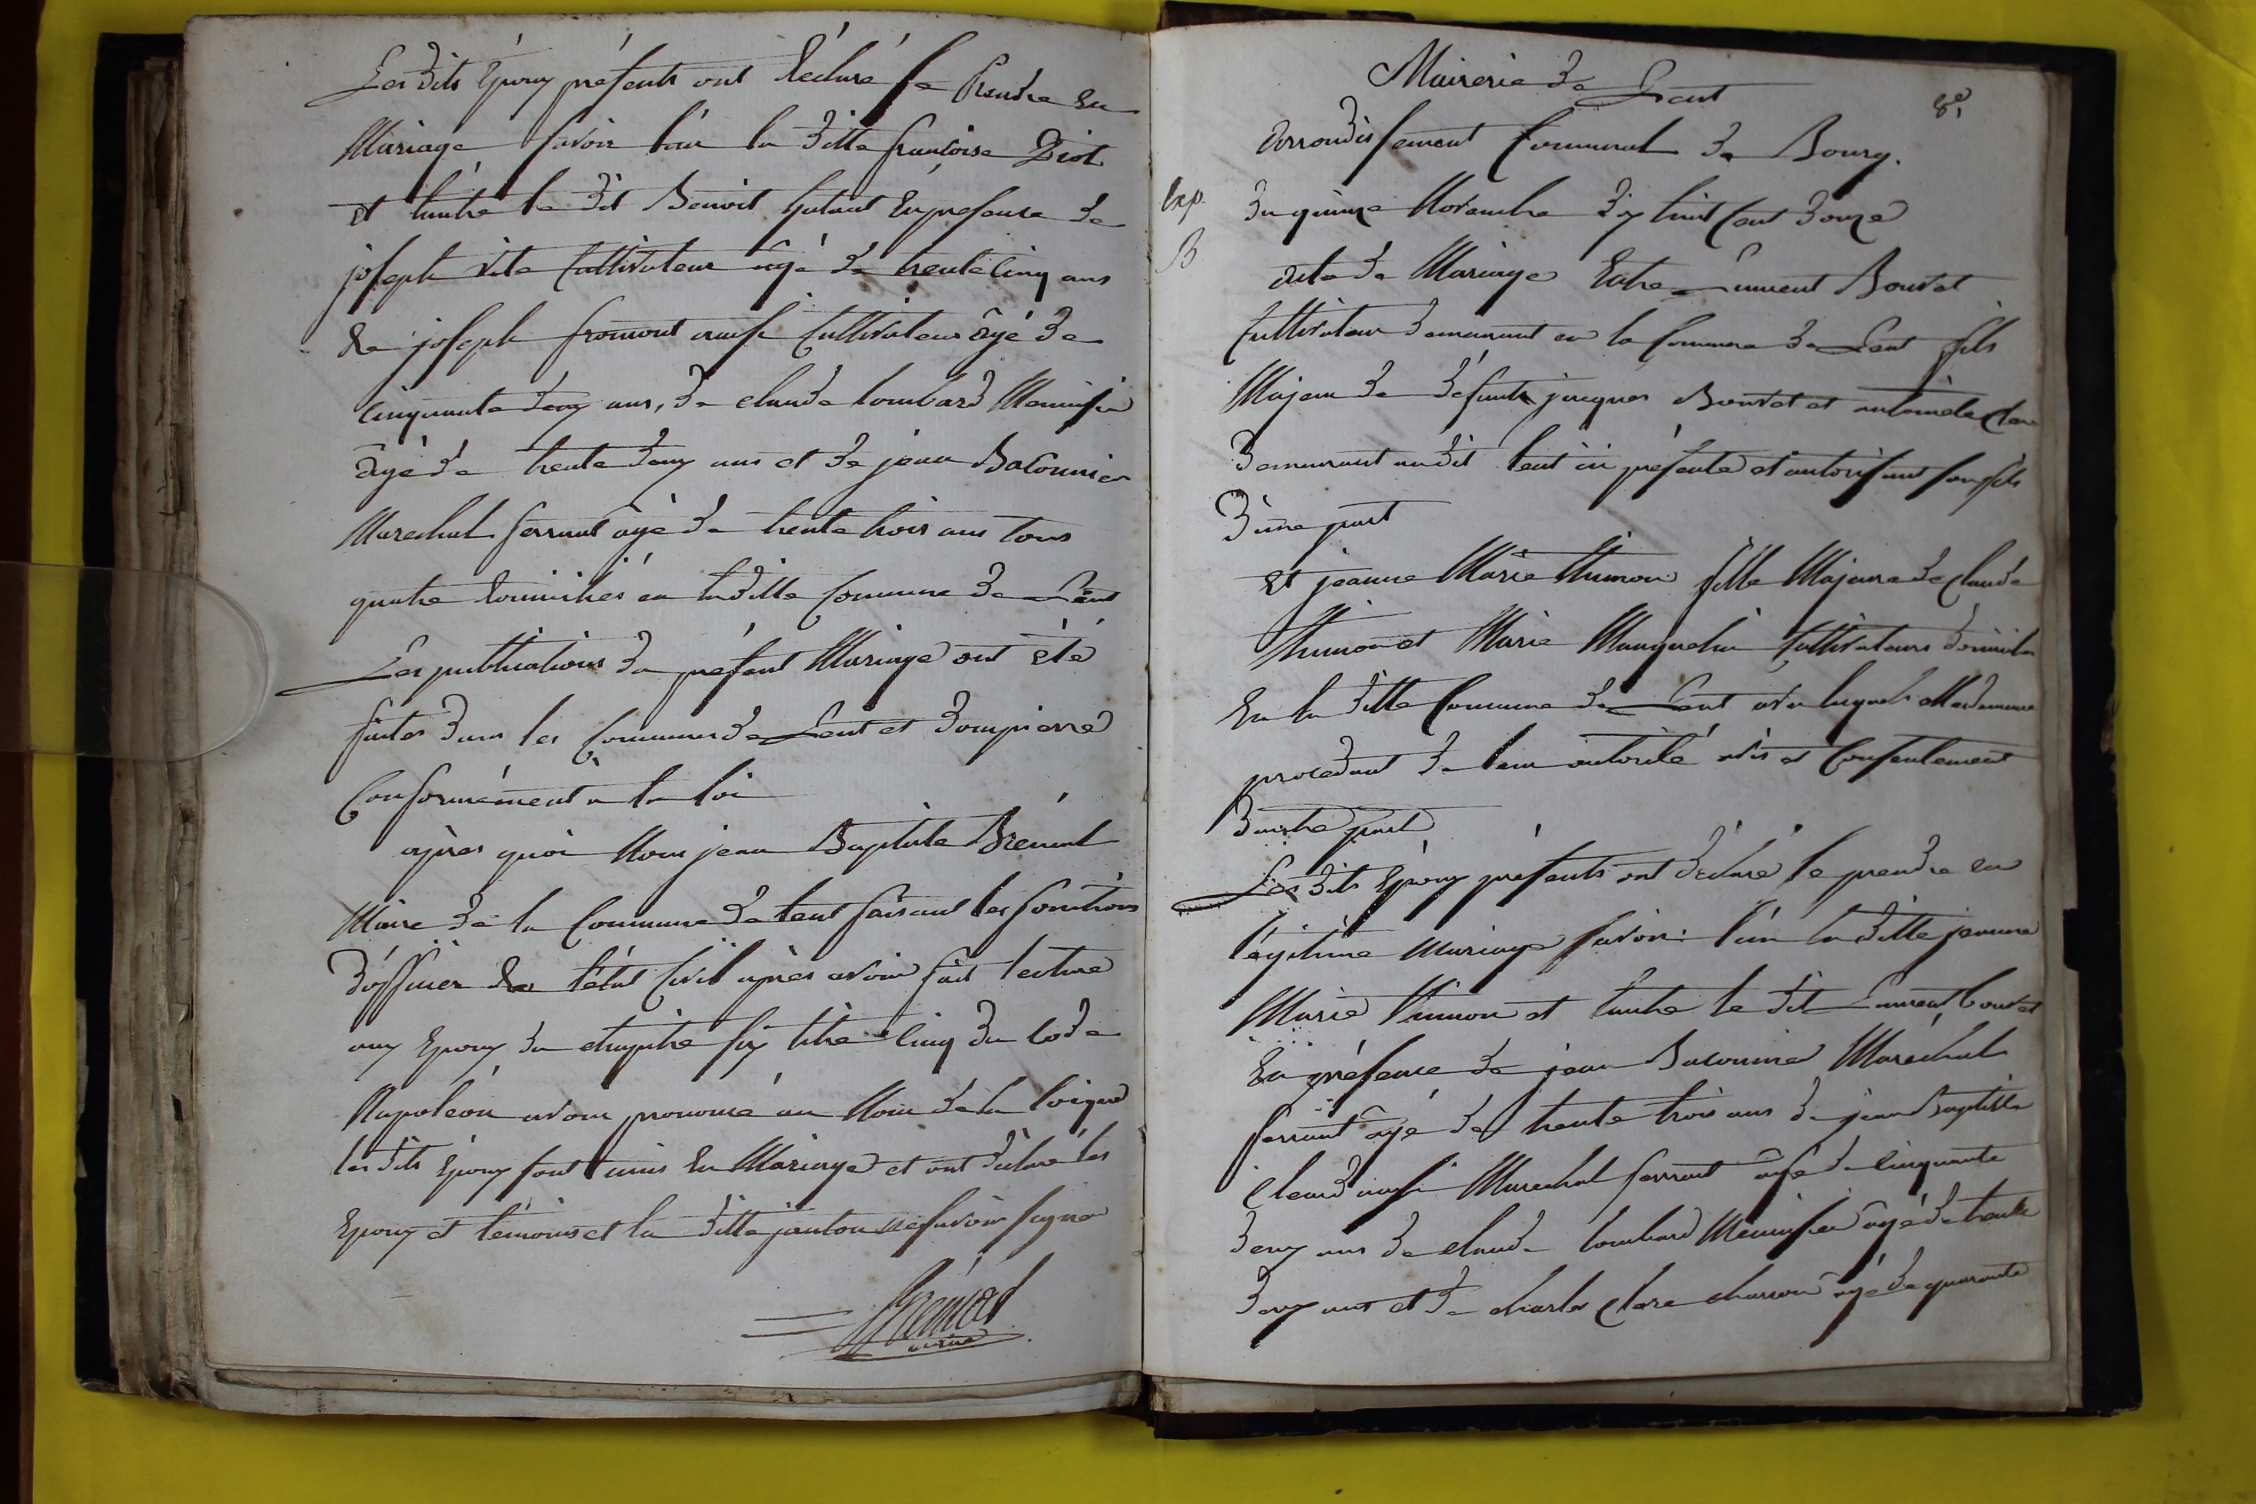 Les dits Epoux présents ont déclaré se Prendre En
Mariage savoir l'un la ditte françoise Diot
et l'autre le dit Benoit Enpresence de
joseph vite Cultivateur âgé de trente Cinq ans
De joseph fromont aussi Cultivateur âgé de
cinquante deux ans, de claude lombard Menuisier
âgé de trente deux ans et de jean Baconnier
Marechal ferrant âgé de trente trois ans tous
quatre domiciliés en laditte Commune de Lent
Les publications du présent Mariage ont été
faites dans les Communes de Lent et dompierre
Conformément à la loi
après quoi Nous jean Baptiste Brévet
Maire de la Commune de lent faisant les fonctions
d'officier De l'état Civil après avoir fait lecture
aux Epoux du chapitre six titre cinq du Code
Napoléon avons prononcé au Nom de la loi que
les dits Epoux sont unis En Mariage et ont déclaré les
Epoux et témoins et la ditte jeanton ne savoir signer
maire
Mairerie de Lent
8e
Arrondissement Communal de Bourg.
Exp.
du quinze Novembre dix huit Cent douze
B
Acte de Mariage Entre Laurent Bouvet
Cultivateur demeurant en la Commune de Lent fils
Majeur de défunt jacques Bouvet et antoinette Clere
demeurant audit lent ici présente et autorisant son fils
d'une part
Et jeanne Marie thimon fille Majeure de Claude
thimon et Marie Cultivateurs domiciliés
En la ditte Commune de Lent
procedant de leur autorité avis et Consentement
d'autre part
Les dits Epoux présents ont déclaré se prendre en
légitime Mariage savoir: l'un la ditte jeanne
Marie thimon et l'autre le dit Laurent bouvet
En présence de jean Baconnier Maréchal
ferrant âgé de trente trois ans de jean Baptiste
aussi Marechal ferrant agé de cinquante
deux ans de claude lombard Menuisier âgé de trente
deux ans et de charles Clere charron âgé de quarante